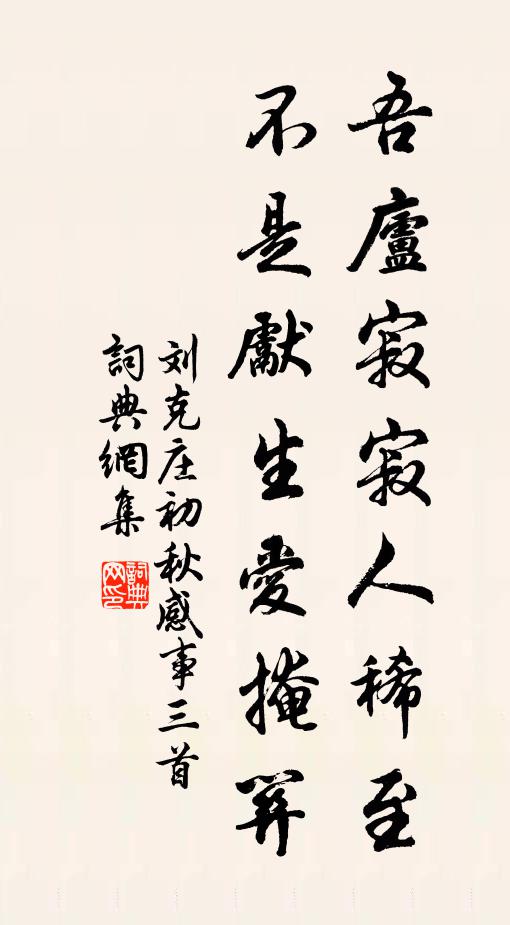 吾廬寂寂人稀至
不是獻生愛掩關
刘克庄初秋感事三首
詞典網集
詞典
网印